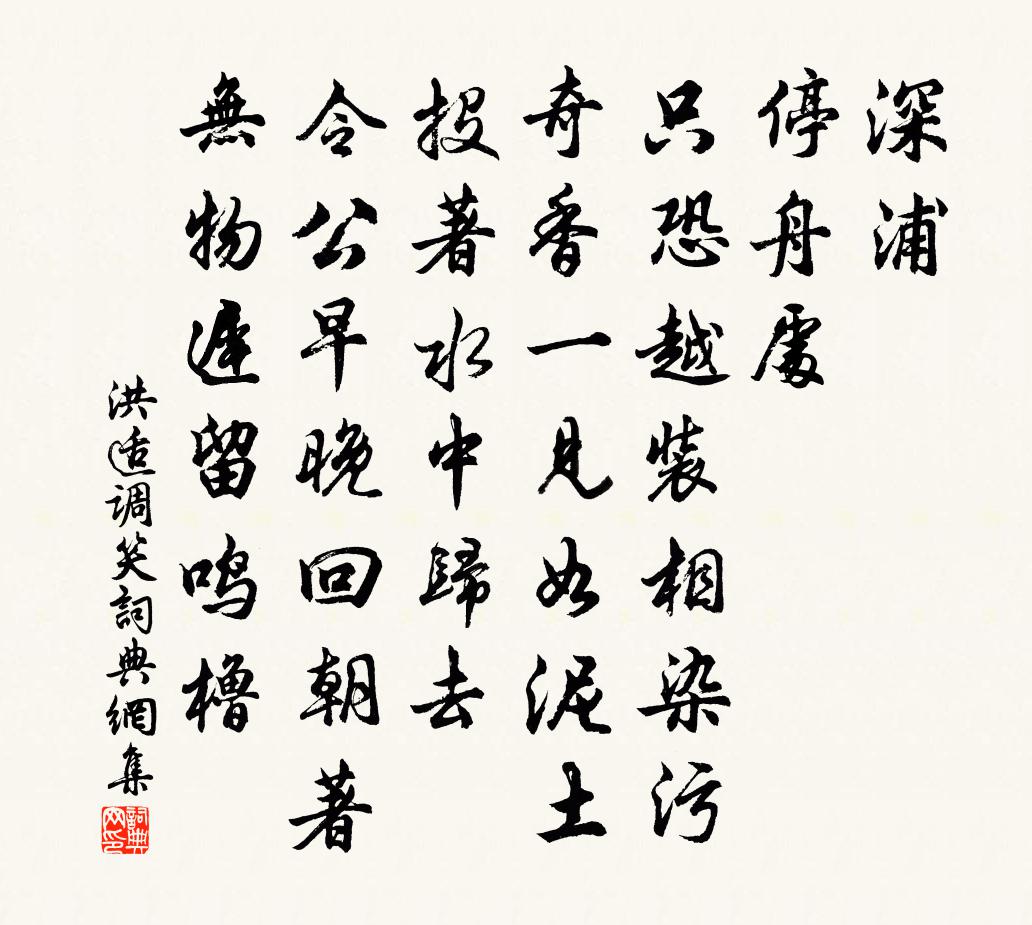 深浦
停舟處
只恐越裝相染污
奇香一見如泥土
投著水中歸去
令公早晚回朝著
無物遲留鳴櫓
洪适調笑詞典網集
詞典网印